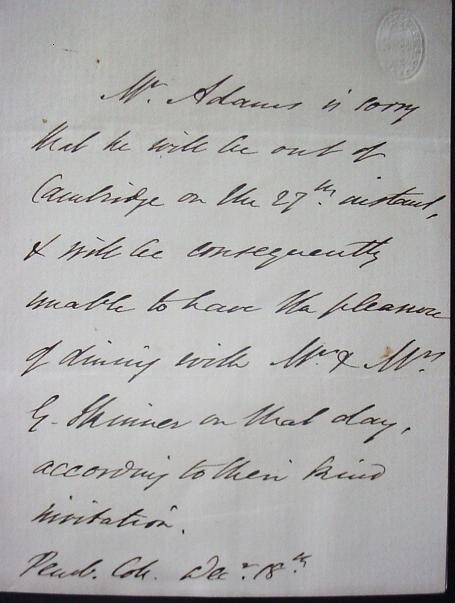 Mr. Adams is sorry
that he will be out of
Cambridge on the 27th. instant,
& will be consequently
unable to have the pleasure
of dining with Mr. & Mrs
G. Skinner on that day,
according to their kind
invitation.
Pemb. Coll. Decr. 18th